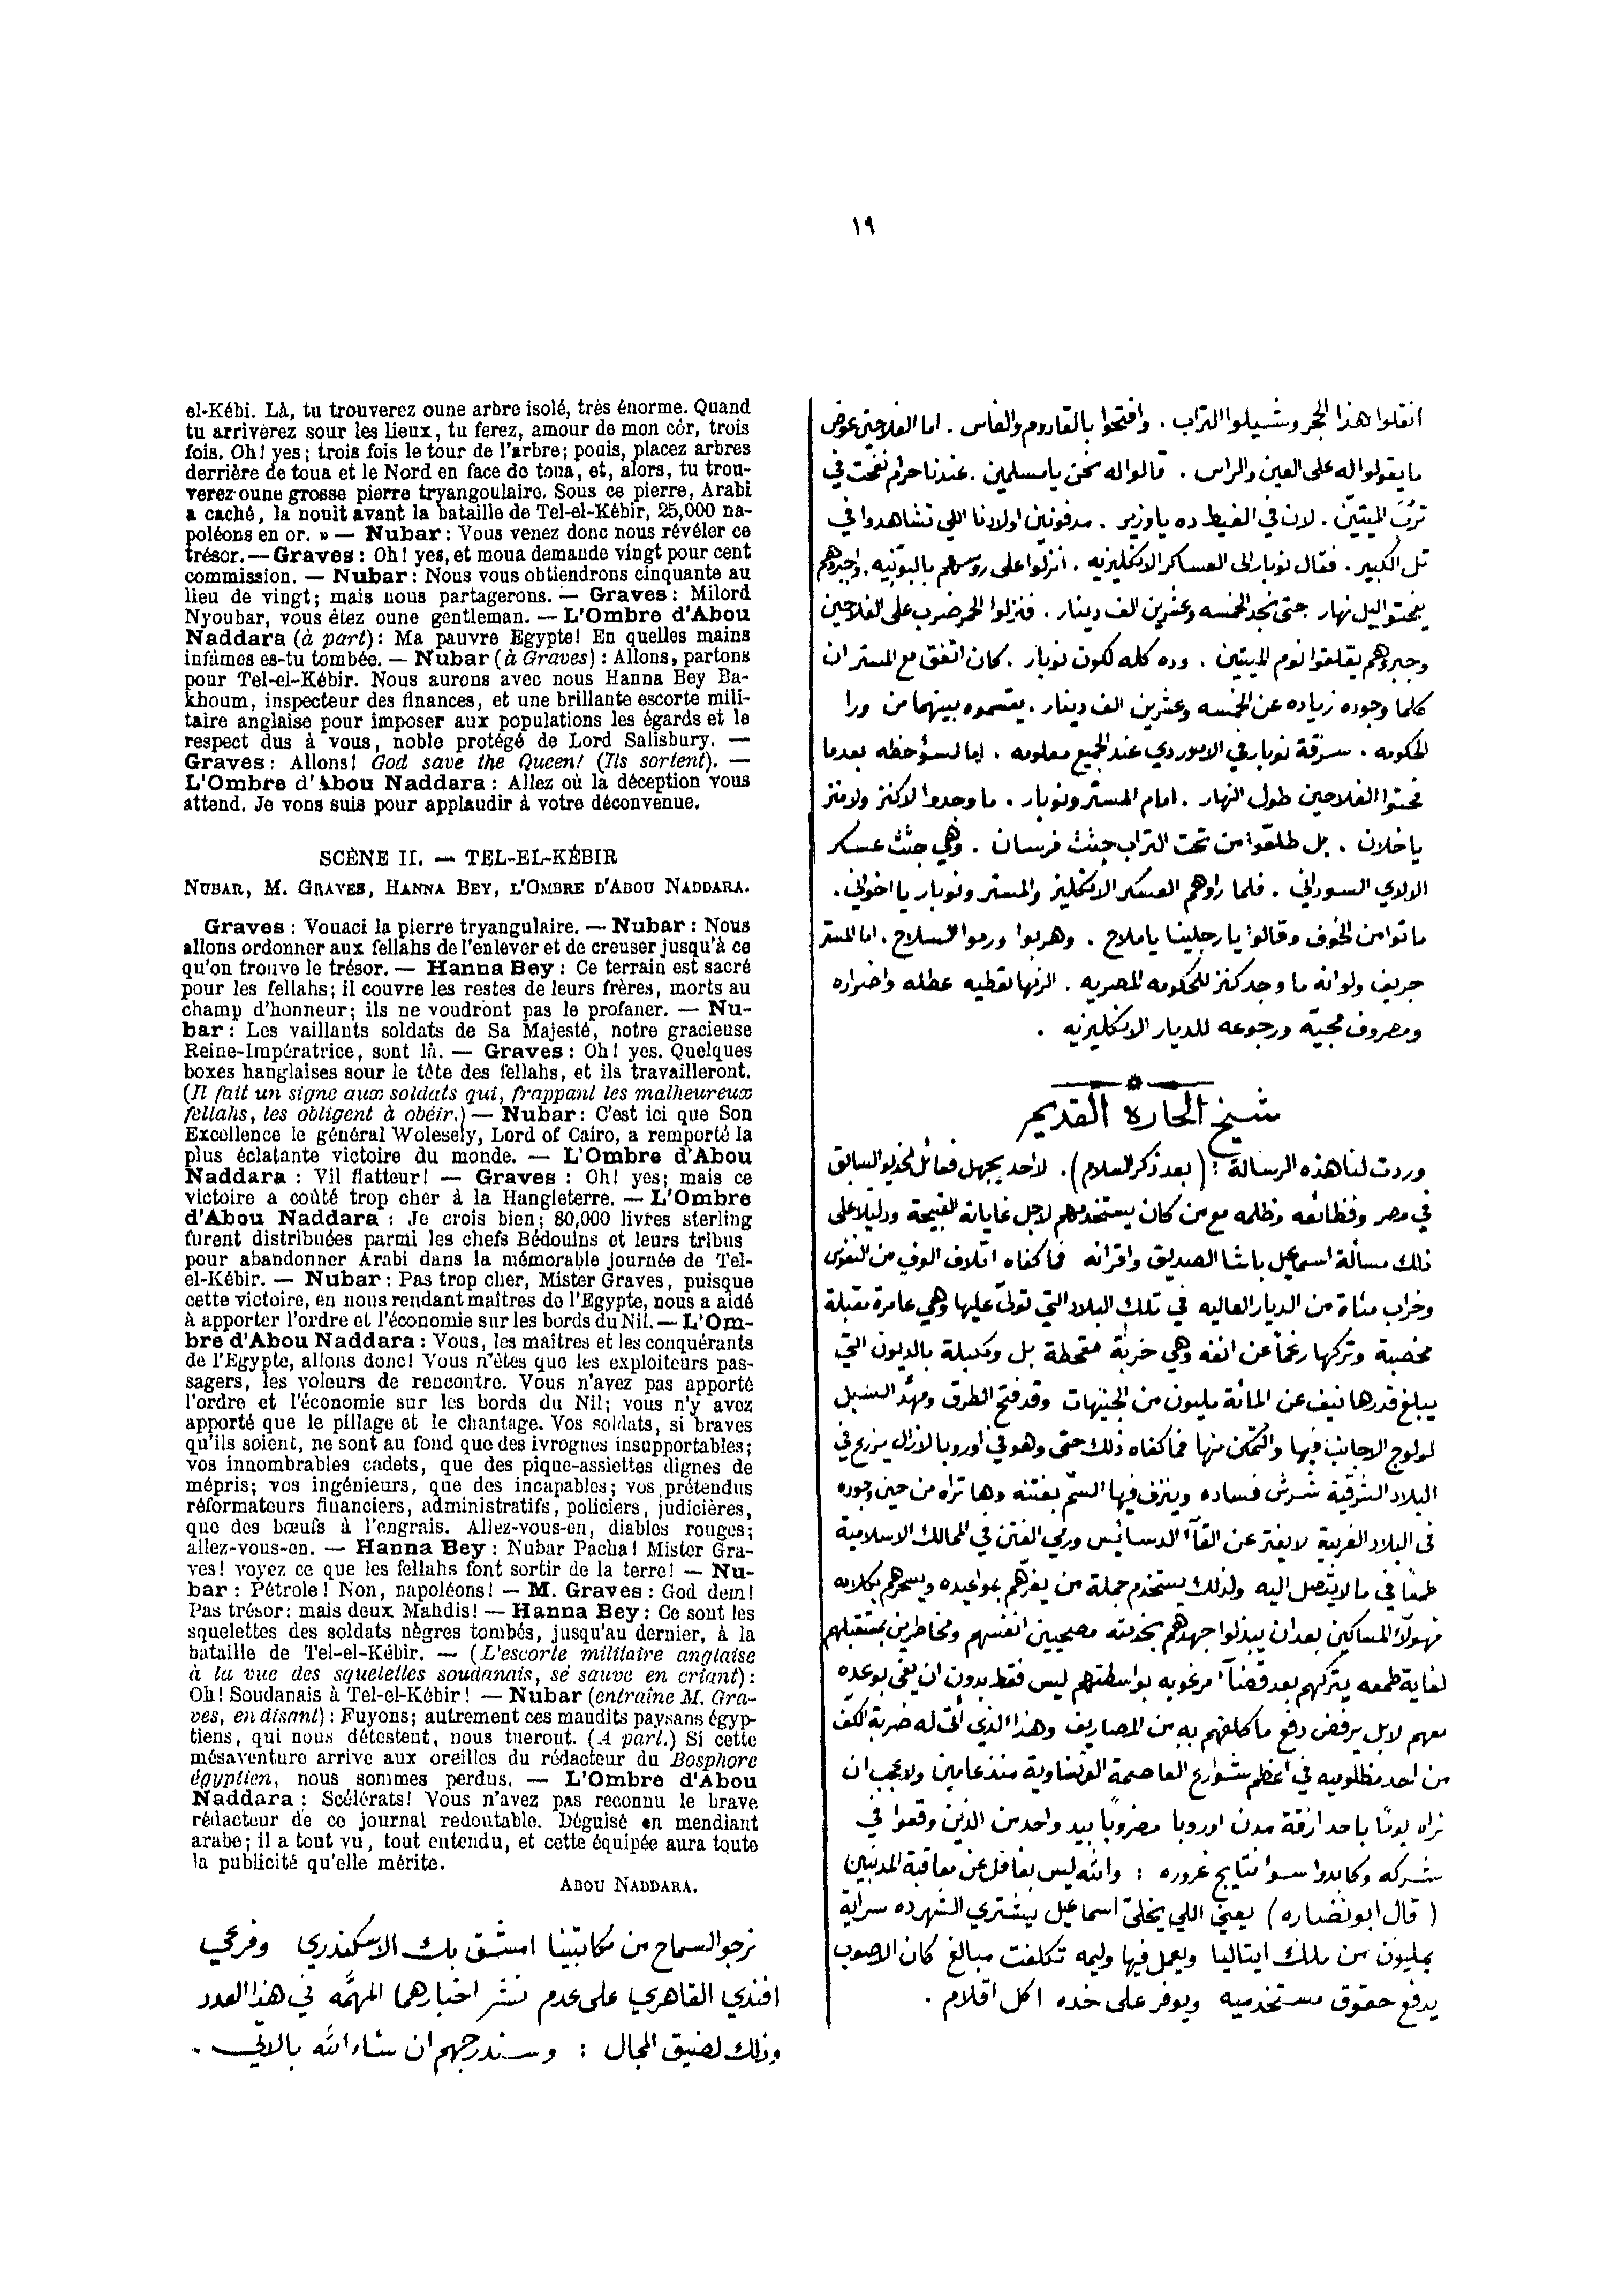 ١٩
el-Kébi. Là, tu trouverez oune arbre isolé, très énorme. Quand
tu arriverez sour les lieux, tu ferez, amour de mon côr, trois
fois. Oh! yes; trois fois le tour de l'arbre; pouis, placez arbres
derrière de toua et le Nord en face de toua, et, alors, tu trou-
verez oune grosse pierre tryangoulaire. Sous ce pierre, Arabi
a caché, la nouit avant la bataille de Tel-el-Kébir, 25,000 na-
poléons en or. » — Nubar: Vous venez donc nous révéler ce
trésor. — Graves: Oh! yes, et moua demaude vingt pour cent
commission. — Nubar: Nous vous obtiendrons cinquante au
lieu de vingt; mais nous partagerons. — Graves: Milord
Nyoubar, vous êtez oune gentleman. — L'Ombre d'Abou
Naddara (à part): Ma pauvre Egypte! En quelles mains
infâmes es-tu tombée. — Nubar (à Graves): Allons, partons
pour Tel-el-Kébir. Nous aurons avec nous Hanna Bey Ba-
khoum, inspecteur des finances, et une brillante escorte mili-
taire anglaise pour imposer aux populations les égards et le
respect dus à vous, noble protégé de Lord Salisbury. —
Graves: Allons! God save the Queen! (Ils sortent). —
L'Ombre d'Abou Naddara: Allez où la déception vous
attend. Je vons suis pour applaudir à votre déconvenue.
SCÈNE II. — TEL-EL-KÉBIR
NUBAR, M. GRAVES, HANNA BEY, L'OMBRE D'ABOU NADDARA.
Graves: Vouaci la pierre tryangulaire. — Nubar: Nous
allons ordonner aux fellahs de l'enlever et de creuser jusqu'à ce
qu'on trouve le trésor. — Hanna Bey: Ce terrain est sacré
pour les fellahs; il couvre les restes de leurs frères, morts au
champ d'honneur; ils ne voudront pas le profaner. — Nu-
bar: Les vaillants soldats de Sa Majesté, notre gracieuse
Reine-Impératrice, sont là. — Graves: Oh! yes. Quelques
boxes hanglaises sour le tête des fellahs, et ils travailleront.
(Il fait un signe aux soldats qui, frappant les malheureux
fellahs, les obligent à obéir.) — Nubar: C'est ici que Son
Excellence le général Wolesely, Lord of Cairo, a remporté la
plus éclatante victoire du monde. — L'Ombre d'Abou
Naddara: Vil flatteur! — Graves: Oh! yes; mais ce
victoire a coûté trop cher à la Hangleterre. — L'Ombre
d'Abou Naddara: Je crois bien; 80,000 livres sterling
furent distribuées parmi les chefs Bédouins et leurs tribus
pour abandonner Arabi dans la mémorable journée de Tel-
el-Kébir. — Nubar: Pas trop cher, Mister Graves, puisque
cette victoire, en nous rendant maîtres de l'Egypte, nous a aidé
à apporter l'ordre et l'économie sur les bords du Nil. — L'Om-
bre d'Abou Naddara: Vous, les maîtres et les conquérants
de l'Egypte, allons donc! Vous n'êtes que les exploiteurs pas-
sagers, les voleurs de rencontre. Vous n'avez pas apporté
l'ordre et l'économie sur les bords du Nil; vous n'y avez
apporté que le pillage et le chantage. Vos soldats, si braves
qu'ils soient, ne sont au fond que des ivrognes insupportables;
vos innombrables cadets, que des pique-assiettes dignes de
mépris; vos ingénieurs, que des incapables; vos prétendus
réformateurs financiers, administratifs, policiers, judicières,
que des bœufs à l'engrais. Allez-vous-en, diables rouges;
allez-vous-en. — Hanna Bey: Nubar Pacha! Mister Gra-
ves! voyez ce que les fellahs font sortir de la terre! — Nu-
bar: Pétrole! Non, napoléons! — M. Graves: God dem!
Pas trésor: mais deux Mahdis! — Hanna Bey: Ce sont les
squelettes des soldats nègres tombés, jusqu'au dernier, à la
bataille de Tel-el-Kébir. — (L'escorte militaire anglaise
à la vue des squelettes soudanais, se sauve en criant):
Oh! Soudanais à Tel-el-Kébir! — Nubar (entraîne M. Gra-
ves, en disant): Fuyons; autrement ces maudits paysans égyp-
tiens, qui nous détestent, nous tueront. (A part.) Si cette
mésaventure arrive aux oreilles du rédacteur du Bosphore
égyptien, nous sommes perdus. — L'Ombre d'Abou
Naddara: Scélérats! Vous n'avez pas reconnu le brave
rédacteur de ce journal redoutable. Déguisé en mendiant
arabe; il a tout vu, tout entendu, et cette équipée aura toute
la publicité qu'elle mérite.
ABOU NADDARA.
نرجو السماح من مكاتبينا امشق بك الاسكندري وفرعجي
افندي القاهري على عدم نشر اخبارهما المهمّه في هذا العدد
وذلك لضيق المجال : وسندرجهم ان شاء الله بالاتي .
انقلوا هذا الحجر وشيلوا التراب . وافتحوا بالقادوم والفاس . اما الفلاحين عوض
ما يقولوا له على العين والراس . قالوا له نحن يا مسلمين . عندنا حرام نفحت في
تُرَب الميتين . لان في الغيط ده يا وزير . مدفونين اولادنا اللي تشاهدوا في
تل الكبير . فقال نوبار الى العساكر الانكليزيه . انزلوا على روسهم بالبونيه . واجبروهم
يفحتوا ليل نهار حتى نجد الخمسه وعشرين الف دينار . فنزلوا الحمر ضرب على الفلاحين
وجبروهم يقلقوا نوم الميتين . وده كله لكون نوبار . كان اتفق مع المستر ان
كلما وجوده زياده عن الخمسه وعشرين الف دينار . يقتسموه بينهما من ورا
الحكومه . سرقة نوبار في الامور دي عند الجميع معلومه . اما لسؤ حظه بعدما
فحتوا الفلاحين طول النهار . امام المستر ونوبار . ما وجدوا لا كنز ولا منز
يا خلان . بل طلعوا من تحت التراب جثث فرسان . وهي جثث عسكر
الالاي السوداني . فلما راوهم العسكر الانكليز والمستر ونوبار يا اخواني .
ماتوا من الخوف وقالوا يا رجلينا يا ملاح . وهربوا ورموا السلاح . اما المستر
جريف ولو انه ما وجد كنز للحكومه المصريه . الزمها تعطيه عطله واضراره
ومصروف مجيّه ورجوعه للديار الانكليزيه .
شيخ الحارة القديم
وردت لنا هذه الرسالة : (بعد ذكر السلام) . لا احد يجهل فعائل الخديو السابق
في مصر وفظائعه وظلمه مع من كان يستخدمهم لاجل غاياته القبيحة ودليلا على
ذلك مسألة اسماعيل باشا الصديق واقرانه فما كفاه اتلاف الوف من النفوس
وخراب مئاة من الديار العاليه في تلك البلاد التي تولّى عليها وهي عامرة مقبلة
مخصبة وتركها رغماً عن انفه وهي خربة مقحطة بل ومكبلة بالديون التي
يبلغ قدرها نيف عن المائة مليون من الجنيهات وقد فتح الطرق ومهّد السبيل
لولوج الاجانب فيها والتمكّن منها فما كفاه ذلك حتى وهو في اوروبا لازال يزرع في
البلاد الشرقية شرش فساده وينزف فيها السمّ بفتنه وها تراه من حين وجوده
فى البلاد الغربية لا يفتر عن القآء الدسائس ورمي الفتن في الممالك الاسلامية
طمعًا في ما لا يتصل اليه ولذلك يستخدم جملة من يغرّهم بمواعيده ويسحرهم بكلامه
فهولآ المساكين بعد ان يبذلوا جهدهم بخدمته مضحيين انفسهم ومخاطرين بمستقبلهم
لغاية طمعه يتركهم بعد قضآء مرغوبه بواسطتهم ليس فقط بدون ان يفي بوعده
معهم لا بل يرفض دفع ما كلفهم به من المصاريف وهذا الذي أتى له ضربة الكف
من احد مظلوميه في اعظم شوارع العاصمة الفرنساوية منذ عامين ولا عجب ان
نراه يومًا باحد ازقة مدن اوروبا مضروبًا بيد واحد من الذين وقعوا في
شركه وكابدوا سؤ نتايج غروره : والله ليس بغافل عن معاقبة المذنبين
(قال ابو نضاره) يعني اللي يخلي اسماعيل يشتري الشهر ده سراية
بمليون من ملك ايتاليا ويعمل فيها وليمه تكلفت مبالغ كان الاصوب
يدفع حقوق مستخدميه ويوفر على خده اكل اقلام .